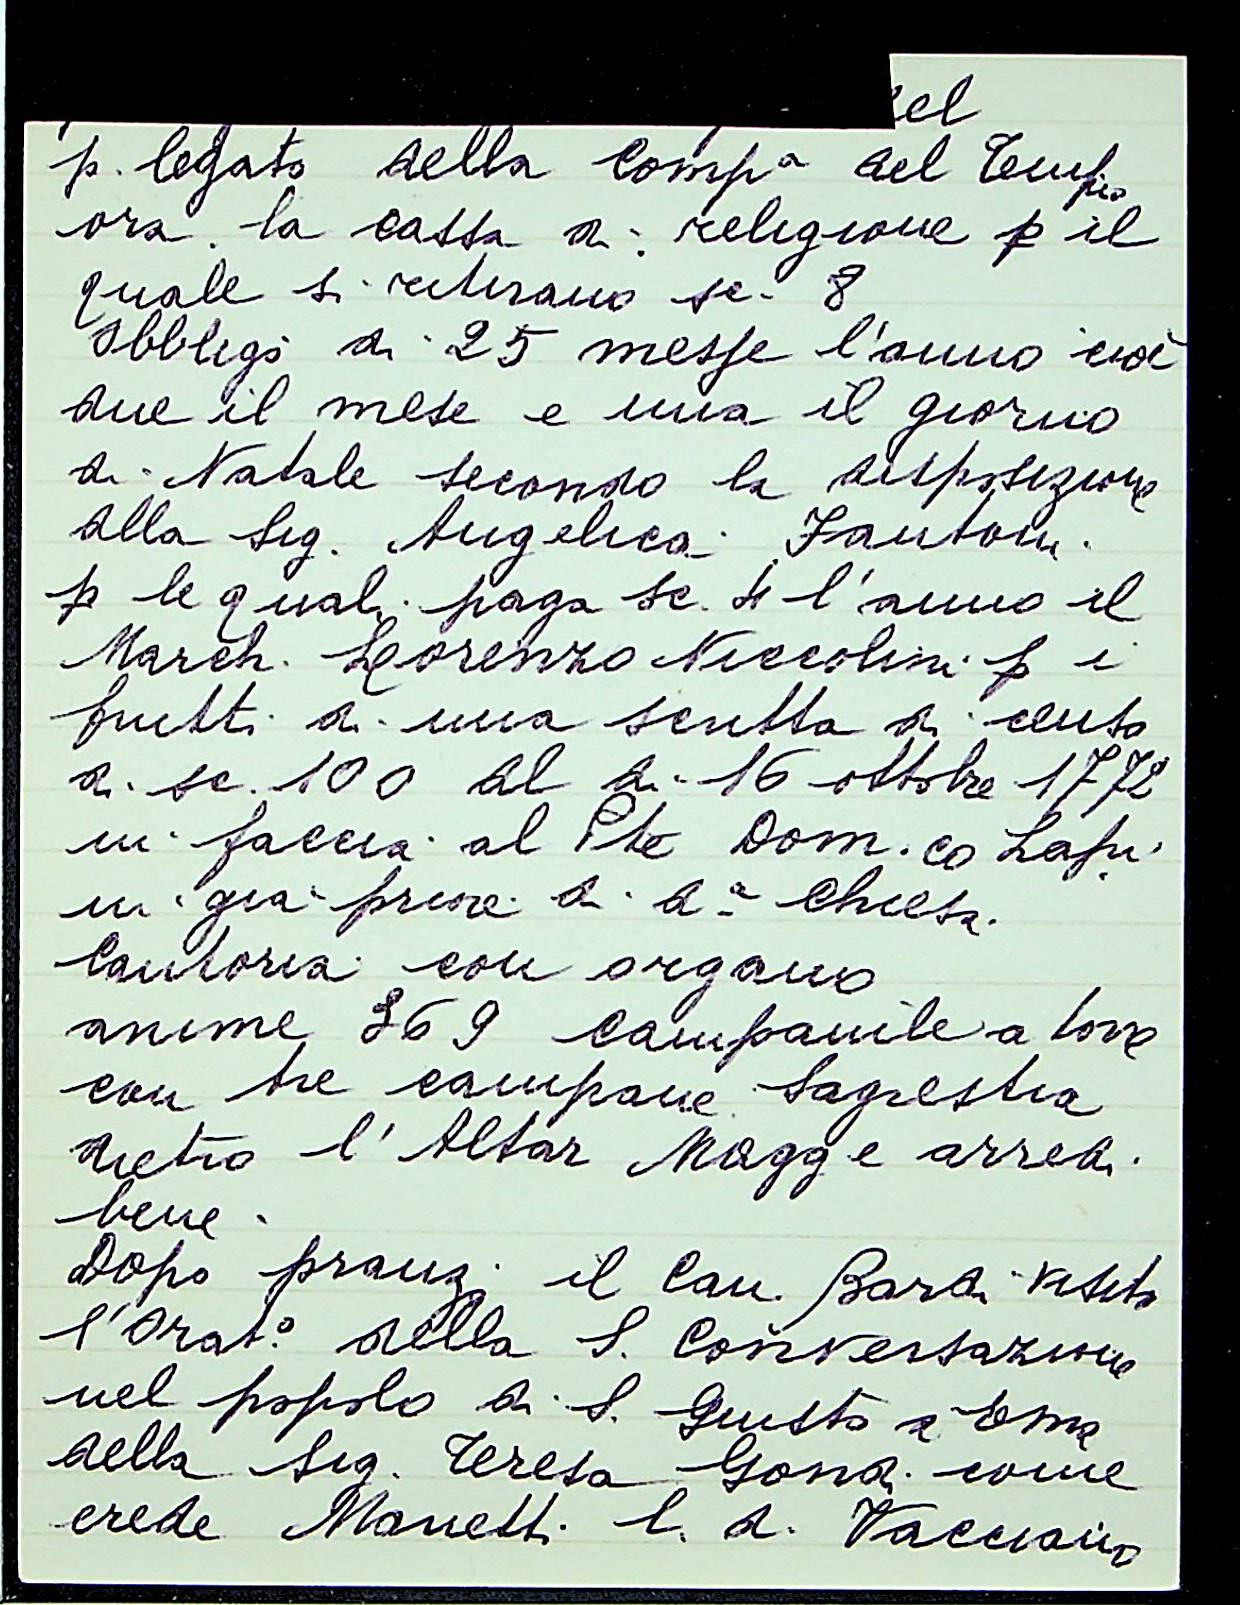 del
p. legato della Comp.a del Tempio
ora la cassa di religione p il
quale si ritirano sc. 8
Obbligo di 25 messe l'anno cioè
due il mese e una il giorno
di Natale secondo la disposizione
della Sig. Angelica Fantoni
p le quali paga sc. 4 l'anno il
March. Lorenzo Niccolini p i
frutti di una scritta di censo
di sc. 100 al di 16 ottobre 1772
in faccia al Pte Dom.co Lapi
ni già priore di d.a Chiesa.
Cantoria con organo
anime 369 campanile a torre
con tre campane Sagrestia
dietro l'Altar Magg e arredi
bene.
Dopo pranz. il Can. Bardi visitò
l'Orat.o della S. Conversazione
nel popolo di S. Giusto a Ema
della Sig. Teresa Gondi come
erede Manetti l. d. Vacciano